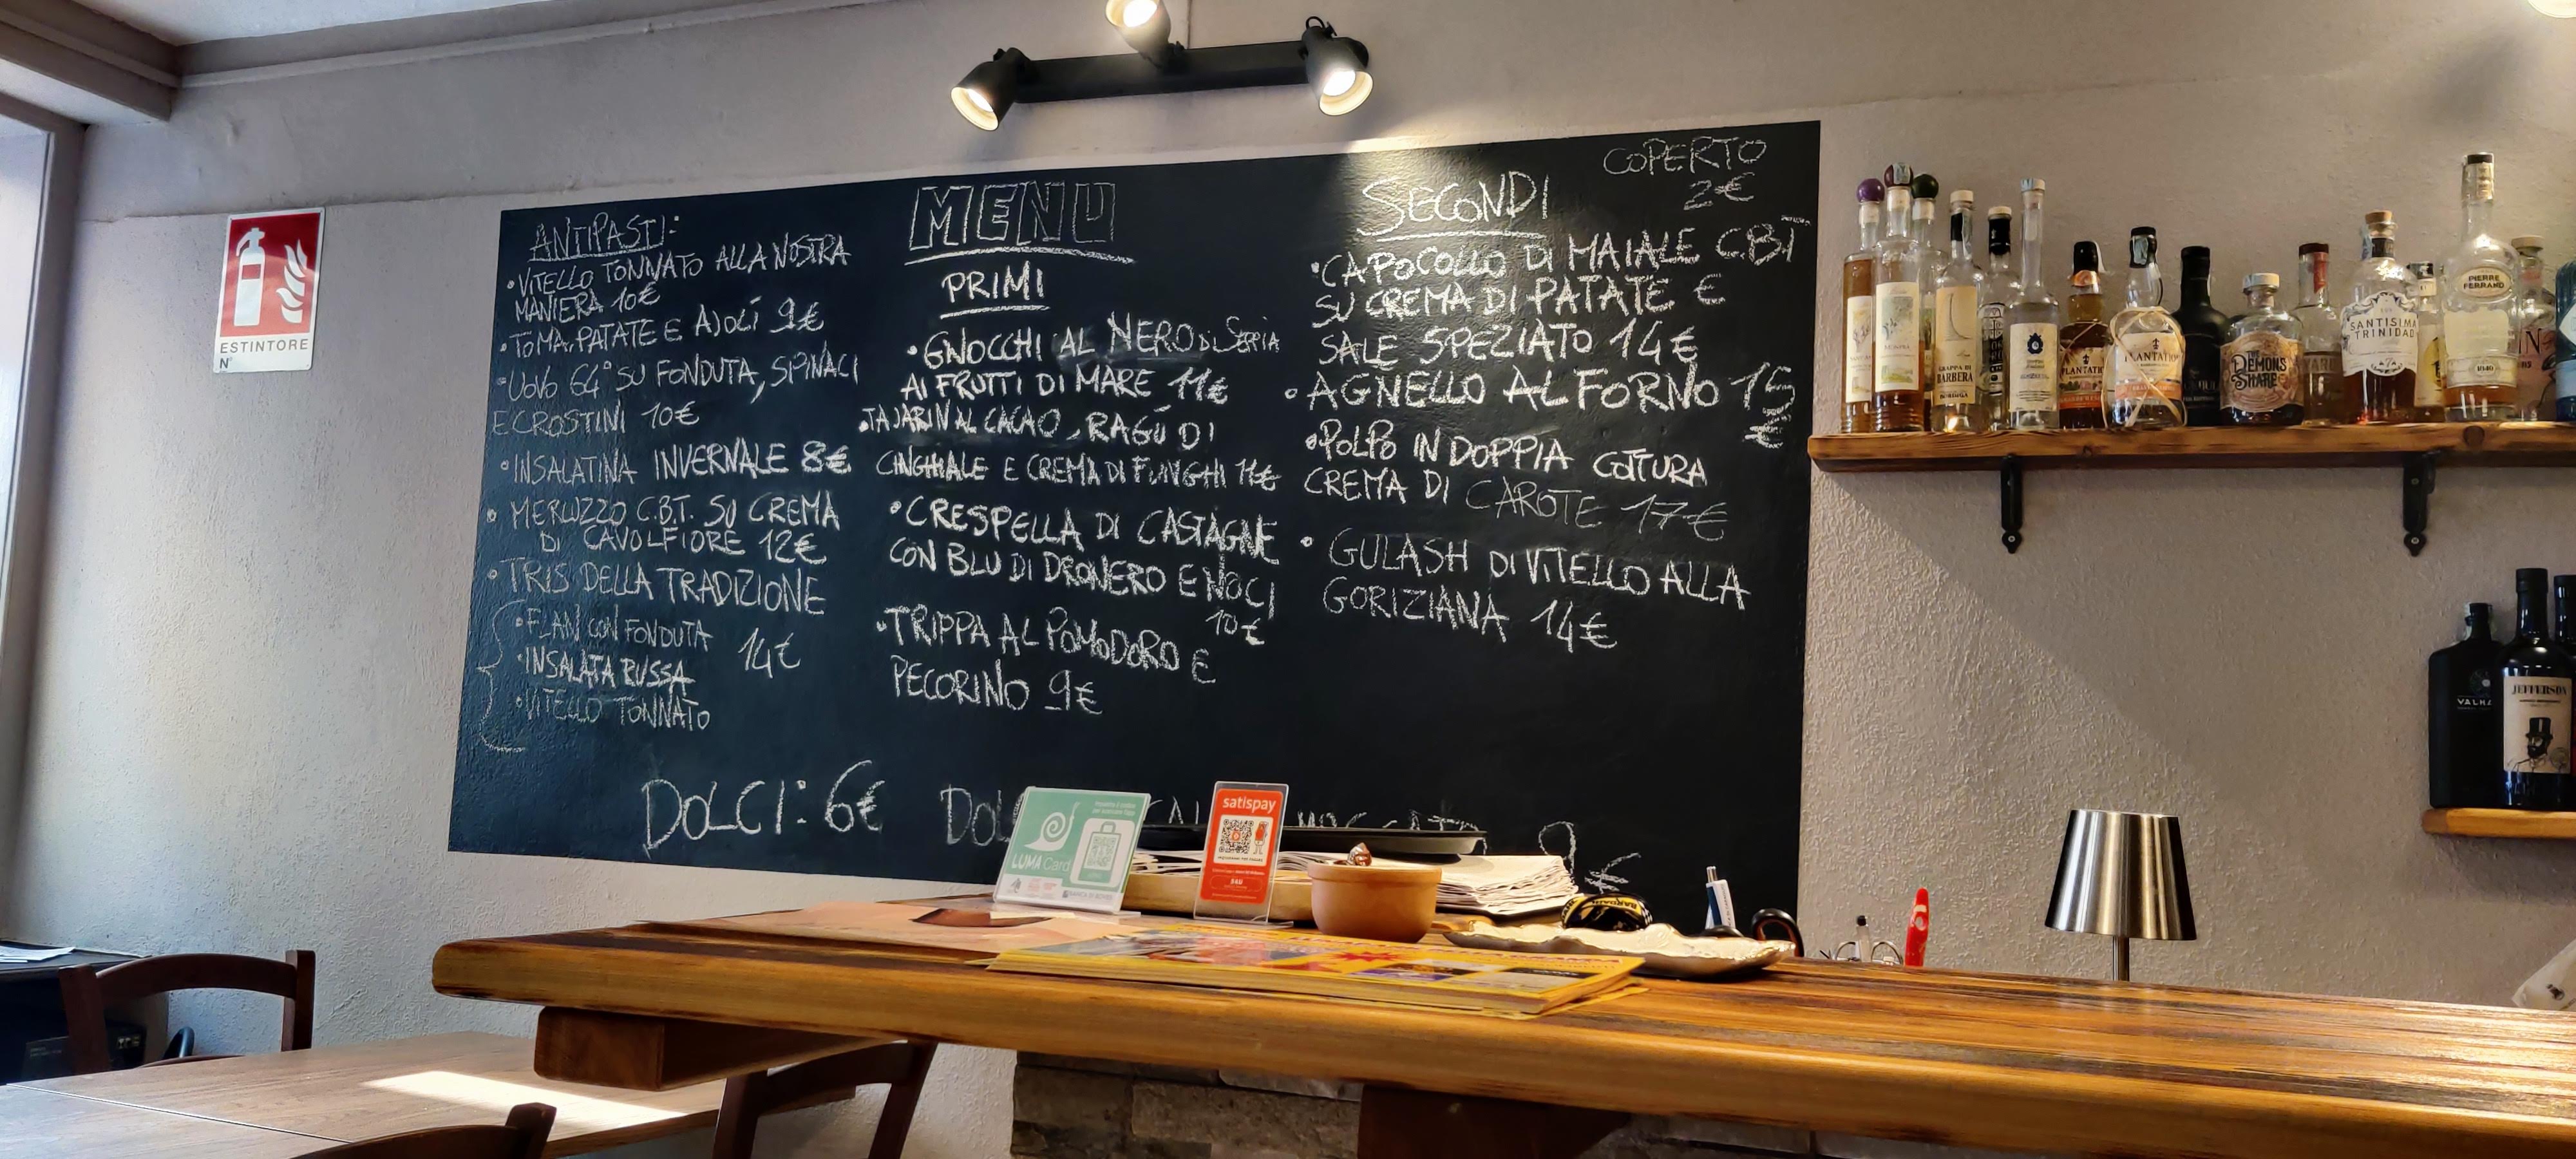 ESTINTORE
N°
ANTIPASTI:
•VITELLO TONNATO ALLA NOSTRA
MANIERA 10€
•TOMA, PATATE E AJOLÍ 9€
•UOVO 64° SU FONDUTA, SPINACI
E CROSTINI 10€
•INSALATINA INVERNALE 8€
• MERLUZZO C.B.T. SU CREMA
DI CAVOLFIORE 12€
•TRIS DELLA TRADIZIONE
•FLAN CON FONDUTA
14€
•INSALATA RUSSA
•VITELLO TONNATO
DOLCI: 6€
MENU
PRIMI
•GNOCCHI AL NERO DI SEPPIA
AI FRUTTI DI MARE 11€
•TAJARIN AL CACAO, RAGÚ DI
CINGHIALE E CREMA DI FUNGHI 11€
•CRESPELLA DI CASTAGNE
CON BLU DI DRONERO E NOCI
10€
•TRIPPA AL POMODORO E
PECORINO 9€
COPERTO
2€
SECONDI
•CAPOCOLLO DI MAIALE C.B.T
SU CREMA DI PATATE E
SALE SPEZIATO 14€
•AGNELLO AL FORNO 15
€
•POLPO IN DOPPIA COTTURA
CREMA DI CAROTE 17€
• GULASH DI VITELLO ALLA
GORIZIANA 14€
9€
LUMA Card
satispay
GRAPPA DI
BARBERA
PLANTATION
THE DEMON'S
SHARE
SANTISIMA
TRINIDAD
PIERRE
FERRAND
1840
JEFFERSON